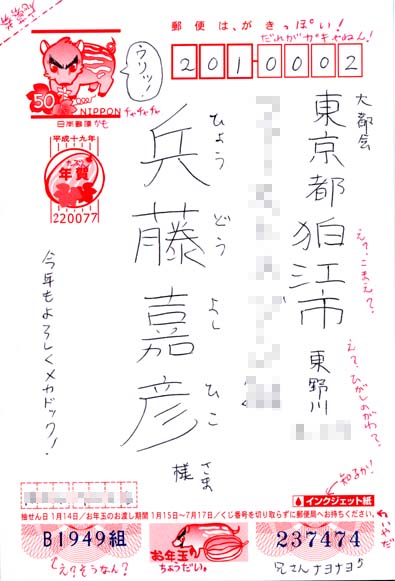 郵便は、がきっぽい!
だれがガキやねん!
ウリッ!
50
NIPPON
チャチャチャ
日本郵便かも
平成十九年
年賀
220077
201-0002
大都会
東京都狛江市 東野川
え?こまえ?
え?ひがしのがわ?
知るか!
兵藤嘉彦
ひょう どう よし ひこ
様
さま
今年もよろしくメカドック!
インクジェット紙
抽せん日 1月14日/お年玉のお渡し期間 1月15日〜7月17日/くじ番号を切り取らずに郵便局へお持ちください。
やだ
B1949組
お年玉
ちょうだい。
237474
え?そうなん?
兄さんナヨナヨ